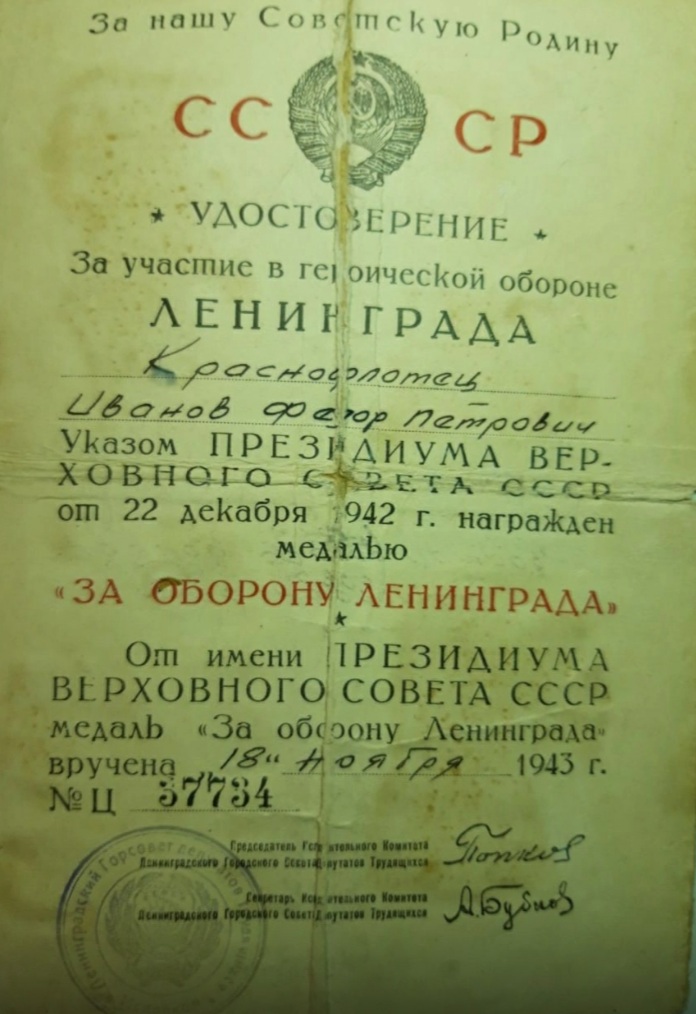 За нашу Советскую Родину
СССР
★ УДОСТОВЕРЕНИЕ ★
За участие в героической обороне
ЛЕНИНГРАДА
Краснофлотец
Иванов Федор Петрович
Указом ПРЕЗИДИУМА ВЕР-
ХОВНОГО СОВЕТА СССР
от 22 декабря 1942 г. награжден
медалью
«ЗА ОБОРОНУ ЛЕНИНГРАДА»
★
От имени ПРЕЗИДИУМА
ВЕРХОВНОГО СОВЕТА СССР
медаль «За оборону Ленинграда»
вручена 18" ноября 1943 г.
№ Ц 37734
Председатель Исполнительного Комитета
Ленинградского Городского Совета депутатов Трудящихся
Попков
Секретарь Исполнительного Комитета
Ленинградского Городского Совета депутатов Трудящихся
А.Бубнов
Ленинградский Горсовет депутатов